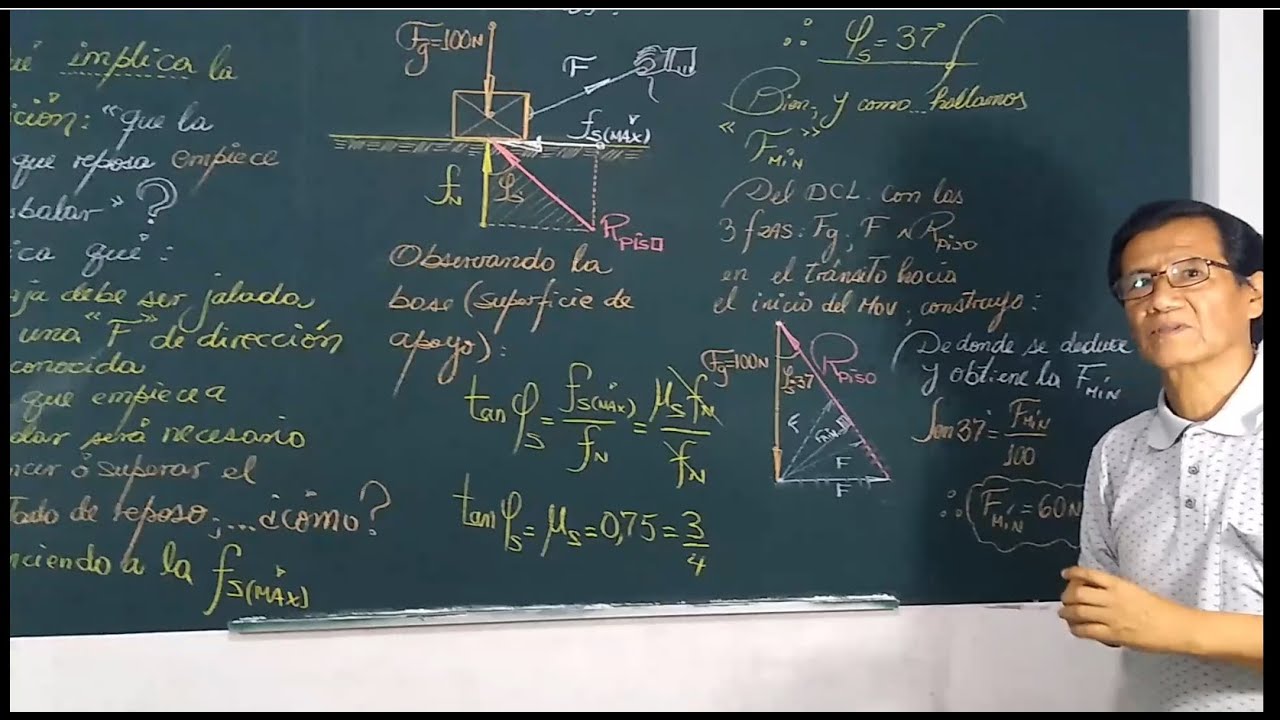 implica la
ición: "que la
que reposa empiece
sbalar"?
ica que:
aja debe ser jalada
una "F" de dirección
conocida
que empiece a
será necesario
ó superar el
tado de reposo;...¿cómo?
nciendo a la fs(MÁX)
Fg=100N
F
fs(MÁX)
fN
φs
RPISO
Observando la
base (superficie de
apoyo):
tanφs = fs(MÁX)/fN = μs fN/fN
tanφs = μs = 0,75 = 3/4
∴ φs = 37°
Bien, y como hallamos
"FMÍN"
Del DCL con las
3 fzas: Fg; F ∧ RPISO
en el tránsito hacia
el inicio del Mov; construyo:
Fg=100N
φs=37
RPISO
F
FMÍN
F
F
De donde se deduce
y obtiene la FMÍN
Sen37 = FMÍN/100
∴ FMÍN = 60N